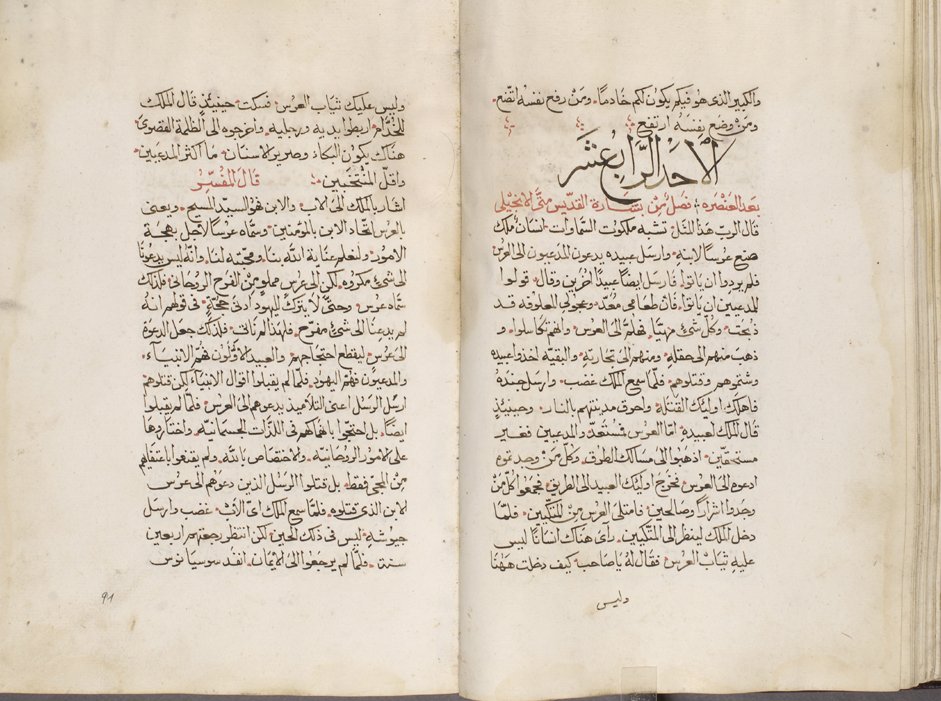 والكبير الذي هو فيكم يكون لكم خادمًا، ومَن رفع نفسه اتضع،
ومَن وضع نفسَه ارتفع
الأحد الرابع عشر
بعد العنصره فصل من بشارة القديس متى الانجيلي
قال الرب هذا المثل تشبه ملكوت السماوات انسان ملك
صنع عرسًا لابنه وارسل عبيده يدعون المدعيون الى العرس
فلم يردوا ان ياتوا فارسل ايضًا عبيدًا اخرين وقال قولوا
للمدعيين ان ياتوا فان طعامي معُدّ وعجولي المعلوفه قد
ذبحت وكل شيء مهيَّا هلم الى العرس وانهم تكاسلوا و
ذهبَ منهم الى حقله ومنهم الى تجارته والبقيه اخذوا عبيده
وشتموهم وقتلوهم فلمّا سمع الملك غضب وارسل جنده
فاهلك اوليك القتلة واحرق مدينتهم بالنار وحينيذٍ
قال الملك لعبيده امّا العرس فمستعدّ والمدعيين فغير
مستحقين اذهبوا الى مسالك الطرق وكل من وجدتموه
ادعوه الى العرس فخرج اوليك العبيد الى الطريق فجمعوا كل من
وجدوا اشرارًا وصالحين فامتلى العرس من المتكيين فلمّا
دخل الملك لينظر الى المتكيين رآى هناك انسانًا ليس
عليهِ ثيابُ العرس فقال لهُ ياصاحب كيف دخلت ههُنا
وليس
وليس عليك ثياب العرس فسكت حينيذٍ قال الملك
للخدّام اربطوا يديه ورجليه واخرجوه الى الظلمة القصوى
هناك يكون البكاء وصرير الاسنان ما اكثر المدعيين
واقلّ المنتخبين قال المفسّر
اشار بالملك الى الاب والابن هو السيّد المسيح ويعنى
بالعرس اتحاد الابن بالمؤمنين وسمّاه عرسًا لاجل بهجة
الامور ولنعلم عناية الله بنا ومحبّته لنا وانّه ليس يدعونا
الى شيء مكروه لكن الى عرس مملو من الفرح الروحاني فلذلك
سمّاه عرس وحتّى لا يترك لليهود ادنى حجّة في قولهم انهُ
لم يدعنا الى شيء مفرّح فلهذا لم ناتي فلذلك جعل الدعوة
الى عرس ليقطع احتجاجهم والعبيد الاوّلون فهم الانبياء
والمدعيون فهم اليهود فلمّا لم يقبلوا اقوال الانبياء لكن قتلوهم
ارسل الرسل اعنى التلاميذ يدعوهم الى العرس فلمّا لم يقبلوا
ايضًا بل احتجّوا بانهماكهم في اللذات الجسمانيّه واختاروها
على الامور الروحانيّه والاختصاص بالله ولم يقنعوا باعتقالهم
من المجى فقط بل قتلوا الرسل الذين دعوهم الى عرس
الابن الذي قتلوه فلمّا سمع الملك اي الاب غضب وارسل
جيوشه ليس في ذلك الحين لكن انتظر رجعتهم اربعين
سنة فلمّا لم يرجعوا الى الايمان انفد سوسيانوس
91